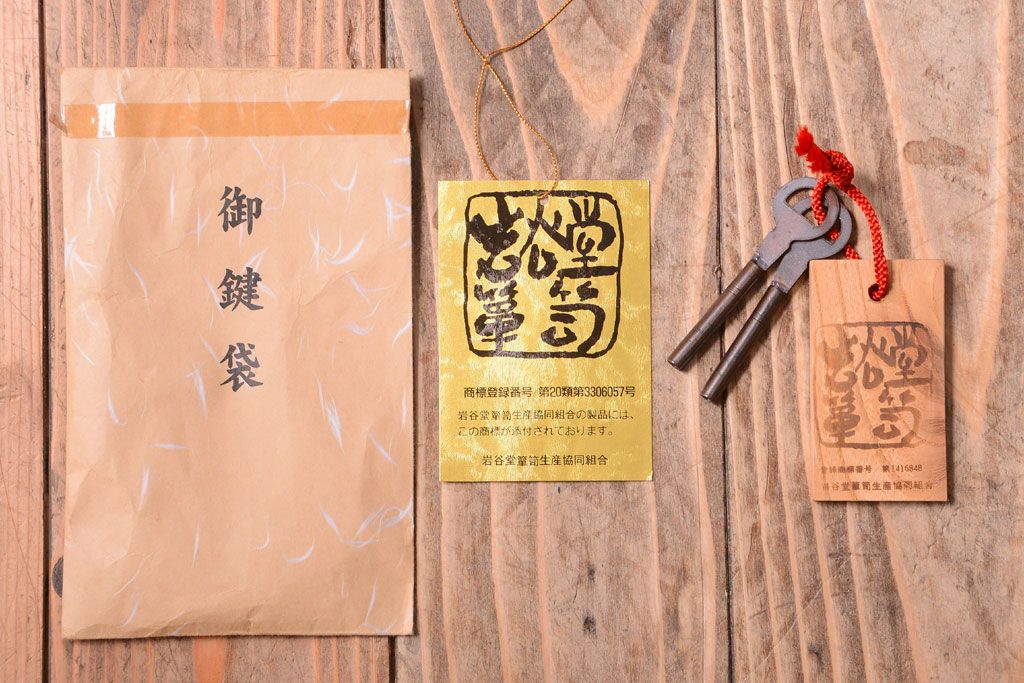 御鍵袋
岩谷堂簞笥
商標登録番号 第20類第3306057号
岩谷堂簞笥生産協同組合の製品には、
この商標が添付されております。
岩谷堂簞笥生産協同組合
岩谷堂簞笥
登録商標番号 第1416848
岩谷堂簞笥生産協同組合